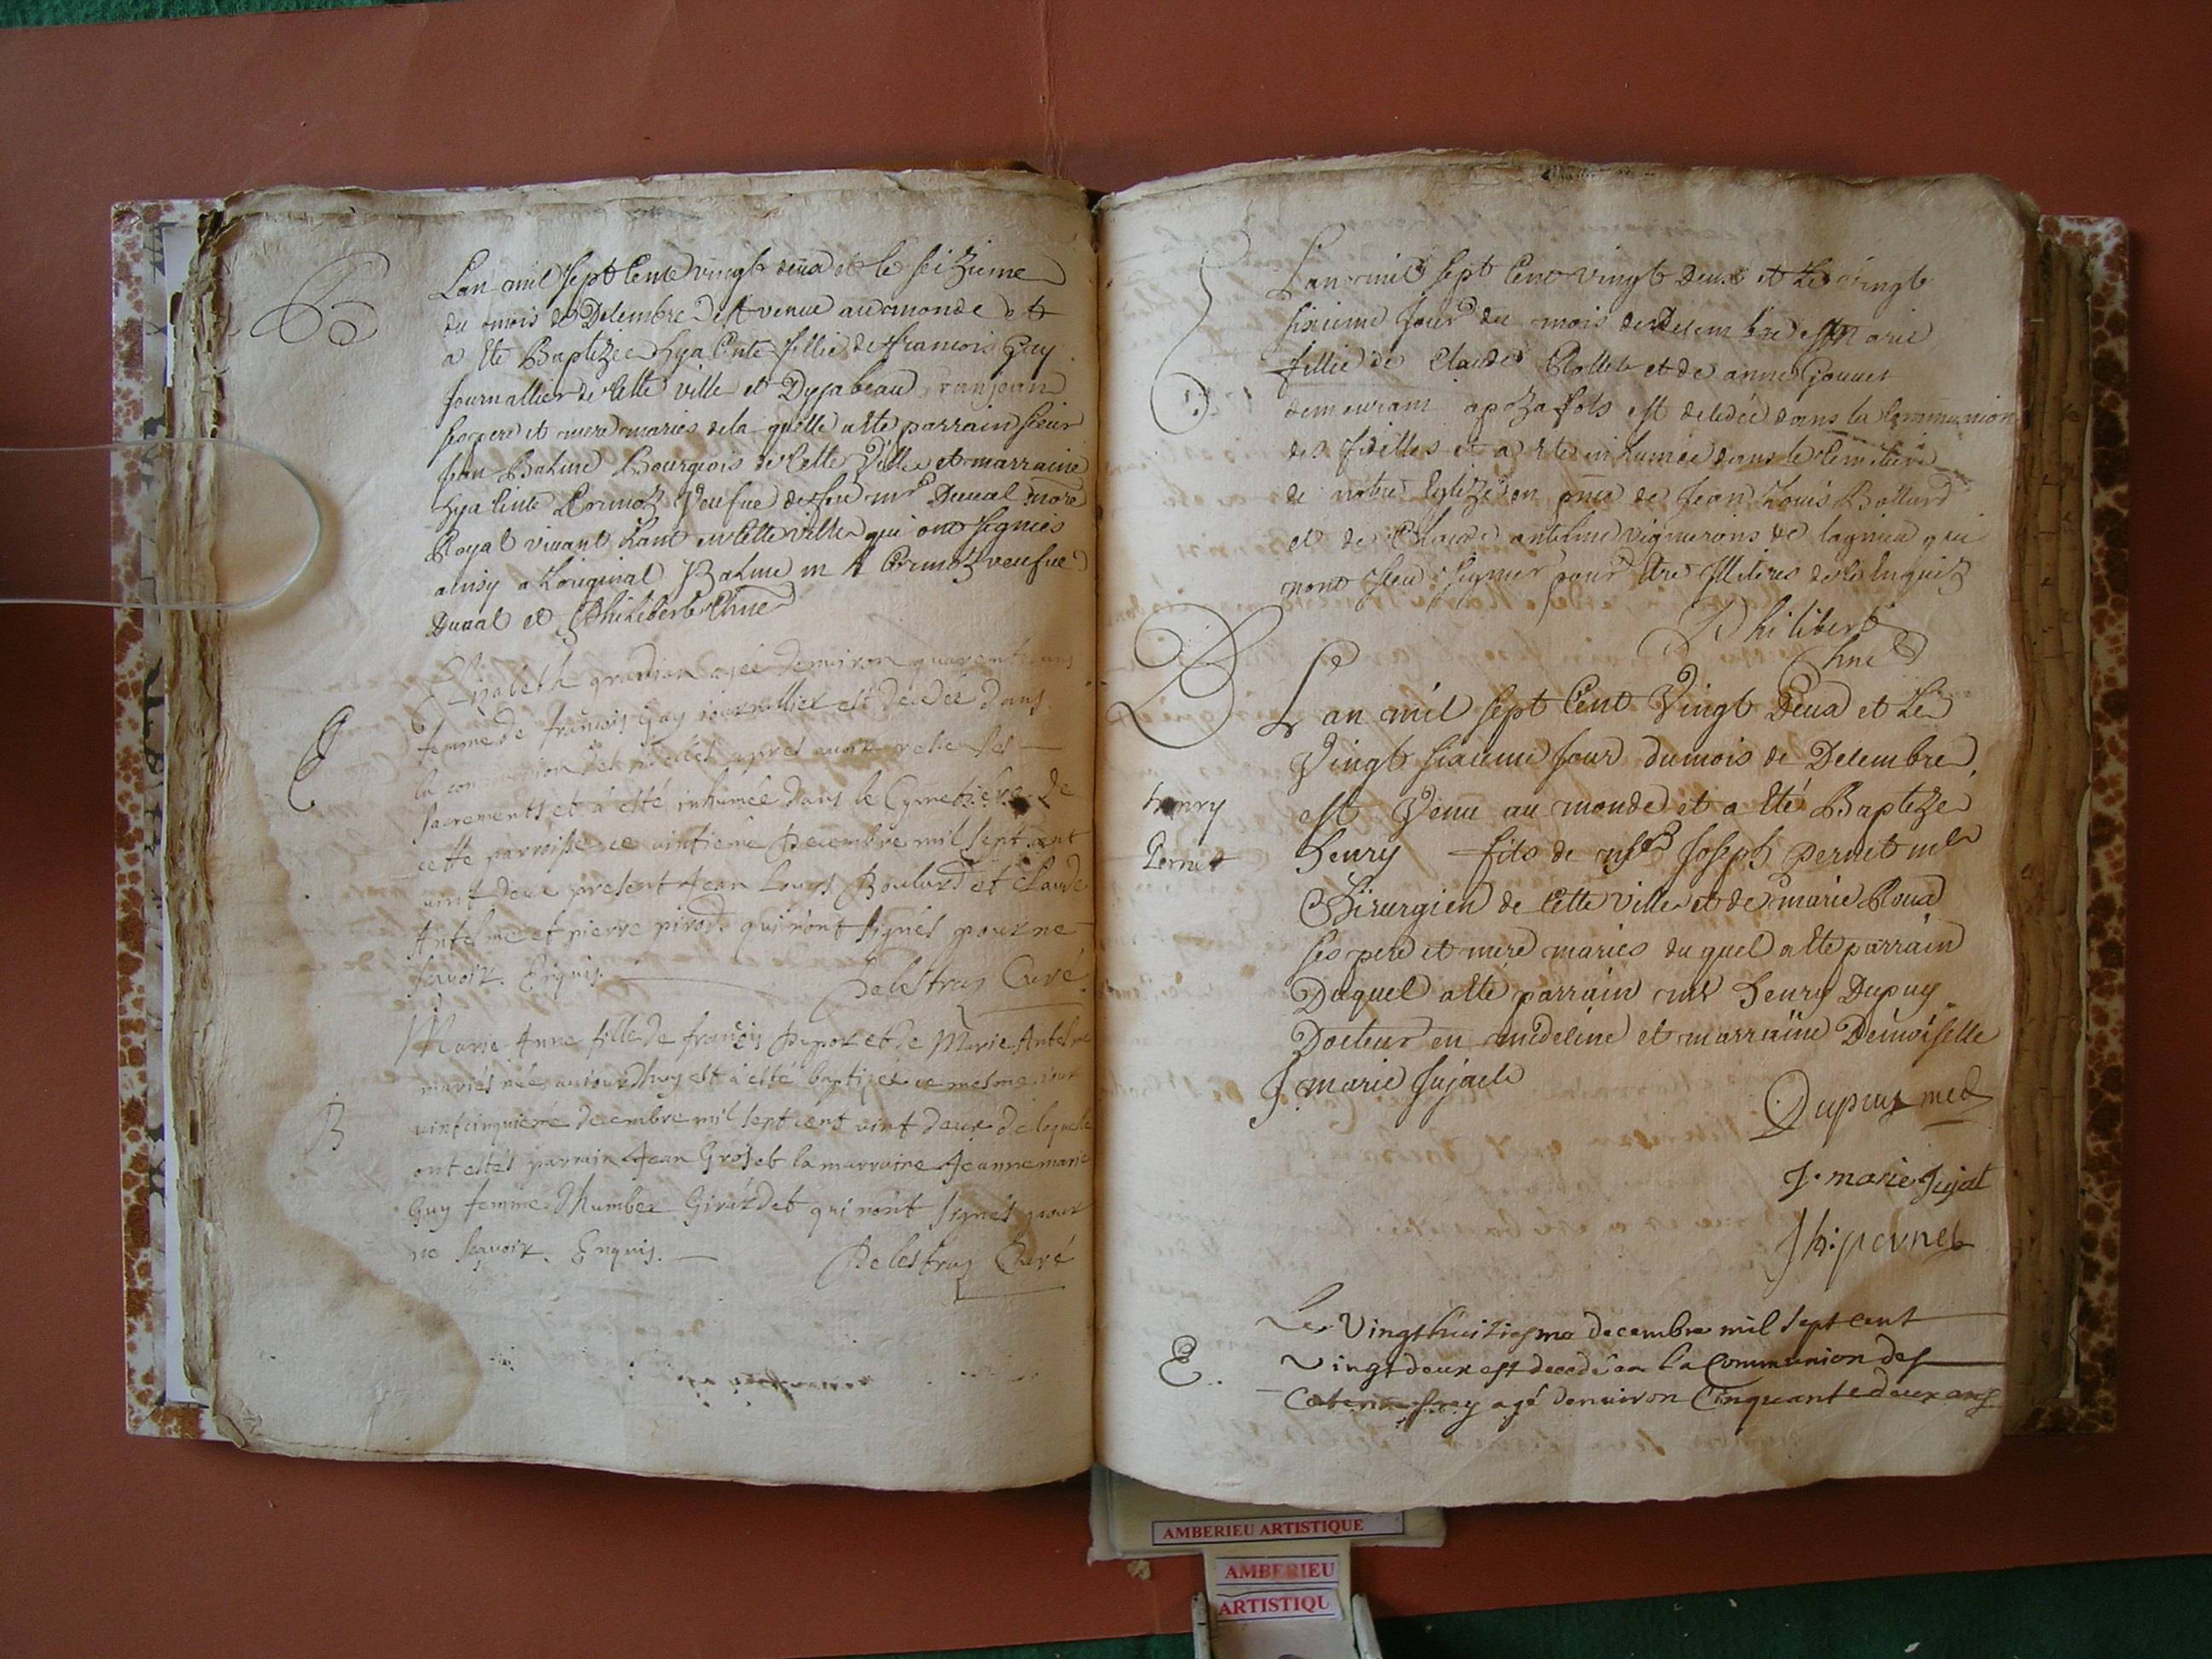 B
Lan mil sept Cent vingt deux et le seizieme
du mois de Decembre est venue au monde et
a ete Baptizee hyacinte fillie de francois Guy
Journallier de Cette ville et Dysabeau
ses pere et mere maries de la quelle a ete parrain sieur
Jean Balme Bourgeois de Cette Ville et marraine
hyacinte Cormoz Veufue de feu mr Duual
Royal viuant Kant en Cette ville qui ont signiés
ainsy a Loriginal Balme m h Cormoz veufue
Duual et Philibert Chne
E
Elizabeth grandian agée denuiron quarente ans
femme de francois Guy journallier est decedée dans
la communion des fidelles apres auoir reseu les
sacrements et à esté inhumée dans le Cymetiere de
cette parroisse ce vintieme Decembre mil sept cent
vint deux present Jean Louys Boulard et claude
Antelme et pierre pirod qui n'ont signés pour ne
scavoir. Enquis.
Delestraz Curé
B
Marie Anne fille de françois Dupor et de Marie Antelme
mariés née aujourdhuy est à esté baptizée ce mesme jour
vintcinquieme decembre mil sept cent vint deux de laquelle
ont estés parrain Jean Groset la marraine Jeanne marie
Guy femme d'humber Girardet qui n'ont signés pour
ne sçavoir. Enquis.
Delestraz Curé
Lan mil sept Cent vingt Deux et Le vingt
sixieme Jour du mois de Decembre Marie
fillie de Claude Rollet et de anne Jouuet
demeurant a pozafols est decedée dans la Communion
des fidelles et a ete inhumée dans le Cemitiere
de notre Eglize en pnce de Jean Louis Bollard
et de Claude antelme vignerons de lagnieu qui
nont sceu signer pour Etre Illiteres de ce Enquis
Philibert
Chne
B
Lan mil sept Cent Vingt Deux et Le
Vingt sixieme Jour du mois de Decembre
henry
Pernet
est Venu au monde et a ete Baptizé
henry fils de Joseph pernet me
Chirurgien de Cette ville et de marie Roux
ses pere et mere maries du quel a ete parrain
Duquel a ete parrain mr henry Dupuy
Docteur en medecine et marraine Demoiselle
J. marie Jujact
Dupuy med
J. marie Jujat
Jh. pernet
E.
Le Vingthuitiesme decembre mil sept cent
Vingt deux est decedé en la Communion des
agé denuiron Cinquante deux ans
AMBERIEU ARTISTIQUE
AMBERIEU
ARTISTIQU